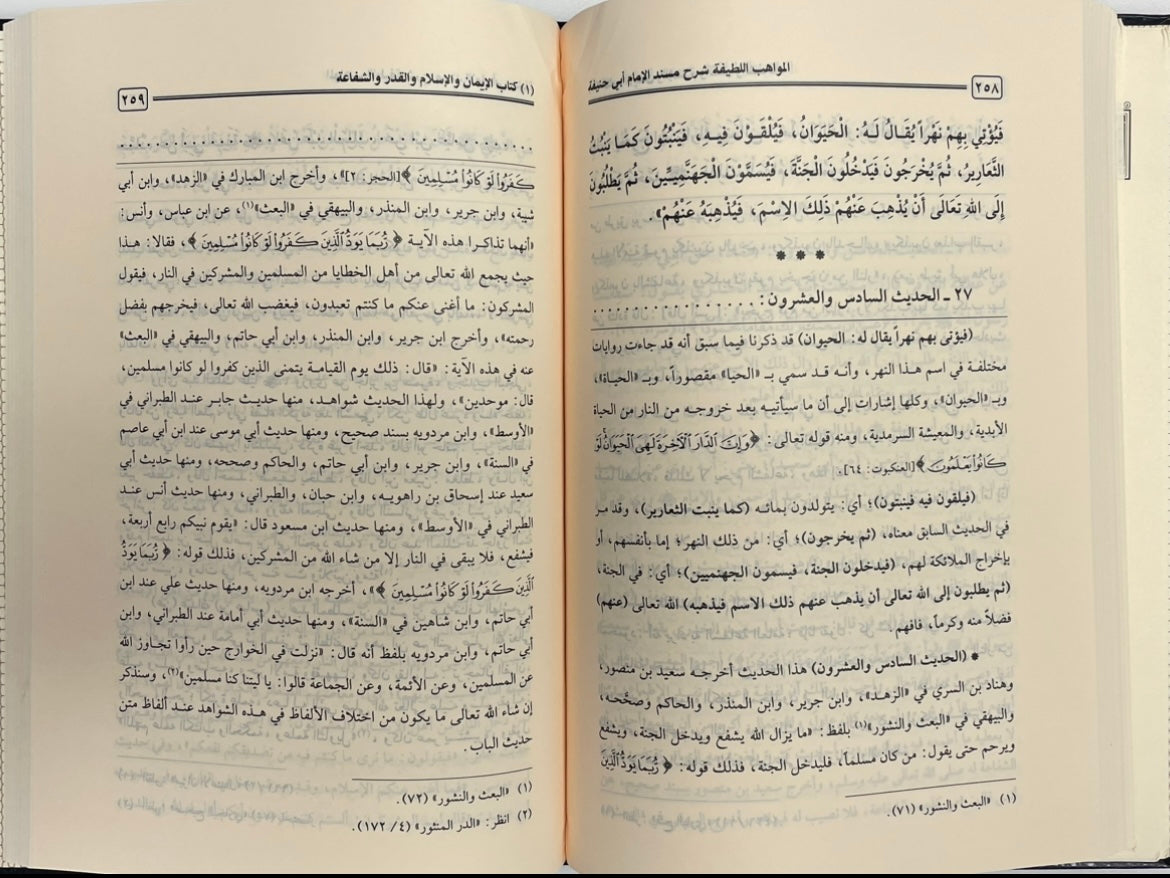 المواهب اللطيفة شرح مسند الإمام أبي حنيفة
٢٥٨
فَيُؤْتِي بِهِمْ نَهْراً يُقَالُ لَهُ: الْحَيَوَانُ، فَيُلْقَوْنَ فِيهِ، فَيَنْبُتُونَ كَمَا يَنْبُتُ
الثَّعَارِيرُ، ثُمَّ يُخْرَجُونَ فَيَدْخُلُونَ الْجَنَّةَ، فَيُسَمَّوْنَ الْجَهَنَّمِيِّينَ، ثُمَّ يَطْلُبُونَ
إِلَى اللهِ تَعَالَى أَنْ يُذْهِبَ عَنْهُمْ ذَلِكَ الاِسْمَ، فَيُذْهِبَهُ عَنْهُمْ».
* * *
٢٧ ـ الحديث السادس والعشرون: . . . . . . . . . . . . . . .
(فيؤتى بهم نهراً يقال له: الحيوان) قد ذكرنا فيما سبق أنه قد جاءت روايات
مختلفة في اسم هذا النهر، وأنه قد سمي بـ «الحيا» مقصوراً، وبـ «الحياة»،
وبـ «الحيوان»، وكلها إشارات إلى أن ما سيأتيه بعد خروجه من النار من الحياة
الأبدية، والمعيشة السرمدية، ومنه قوله تعالى: ﴿وَإِنَّ ٱلدَّارَ ٱلْآخِرَةَ لَهِىَ ٱلْحَيَوَانُ لَوْ
كَانُوا۟ يَعْلَمُونَ﴾ [العنكبوت: ٦٤].
(فيلقون فيه فينبتون)؛ أي: يتولدون بمائه (كما ينبت الثعارير)، وقد مر
في الحديث السابق معناه، (ثم يخرجون)؛ أي: من ذلك النهر؛ إما بأنفسهم، أو
بإخراج الملائكة لهم، (فيدخلون الجنة، فيسمون الجهنميين)؛ أي: في الجنة،
(ثم يطلبون إلى الله تعالى أن يذهب عنهم ذلك الاسم فيذهبه) الله تعالى (عنهم)
فضلاً منه وكرماً، فافهم.
* (الحديث السادس والعشرون) هذا الحديث أخرجه سعيد بن منصور،
وهناد بن السري في «الزهد»، وابن جرير، وابن المنذر، والحاكم وصحَّحه،
والبيهقي في «البعث والنشور»(١) بلفظ: «ما يزال الله يشفع ويدخل الجنة، ويشفع
ويرحم حتى يقول: من كان مسلماً، فليدخل الجنة، فذلك قوله: ﴿رُّبَمَا يَوَدُّ ٱلَّذِينَ
(١) «البعث والنشور» (٧١).
(١) كتاب الإيمان والإسلام والقدر والشفاعة
٢٥٩
. . . . . . . . . . . . . . . . . . . . . . . . . . . . . . . . . . . . . . . .
كَفَرُوا۟ لَوْ كَانُوا۟ مُسْلِمِينَ﴾ [الحجر: ٢]»، وأخرج ابن المبارك في «الزهد»، وابن أبي
شيبة، وابن جرير، وابن المنذر، والبيهقي في «البعث»(١)، عن ابن عباس، وأنس:
«أنهما تذاكرا هذه الآية ﴿رُّبَمَا يَوَدُّ ٱلَّذِينَ كَفَرُوا۟ لَوْ كَانُوا۟ مُسْلِمِينَ﴾، فقالا: هذا
حيث يجمع الله تعالى من أهل الخطايا من المسلمين والمشركين في النار، فيقول
المشركون: ما أغنى عنكم ما كنتم تعبدون، فيغضب الله تعالى، فيخرجهم بفضل
رحمته»، وأخرج ابن جرير، وابن المنذر، وابن أبي حاتم، والبيهقي في «البعث»
عنه في هذه الآية: «قال: ذلك يوم القيامة يتمنى الذين كفروا لو كانوا مسلمين،
قال: موحدين»، ولهذا الحديث شواهد، منها حديث جابر عند الطبراني في
«الأوسط»، وابن مردويه بسند صحيح، ومنها حديث أبي موسى عند ابن أبي عاصم
في «السنة»، وابن جرير، وابن أبي حاتم، والحاكم وصححه، ومنها حديث أبي
سعيد عند إسحاق بن راهويه، وابن حبان، والطبراني، ومنها حديث أنس عند
الطبراني في «الأوسط»، ومنها حديث ابن مسعود قال: «يقوم نبيكم رابع أربعة،
فيشفع، فلا يبقى في النار إلا من شاء الله من المشركين، فذلك قوله: ﴿رُّبَمَا يَوَدُّ
ٱلَّذِينَ كَفَرُوا۟ لَوْ كَانُوا۟ مُسْلِمِينَ﴾»، أخرجه ابن مردويه، ومنها حديث علي عند ابن
أبي حاتم، وابن شاهين في «السنة»، ومنها حديث أبي أمامة عند الطبراني، وابن
أبي حاتم، وابن مردويه بلفظ أنه قال: «نزلت في الخوارج حين رأوا تجاوز الله
عن المسلمين، وعن الأئمة، وعن الجماعة قالوا: يا ليتنا كنا مسلمين»(٢)، وسنذكر
إن شاء الله تعالى ما يكون من اختلاف الألفاظ في هذه الشواهد عند ألفاظ متن
حديث الباب.
(١) «البعث والنشور» (٧٢).
(٢) انظر: «الدر المنثور» (٤/ ١٧٢).